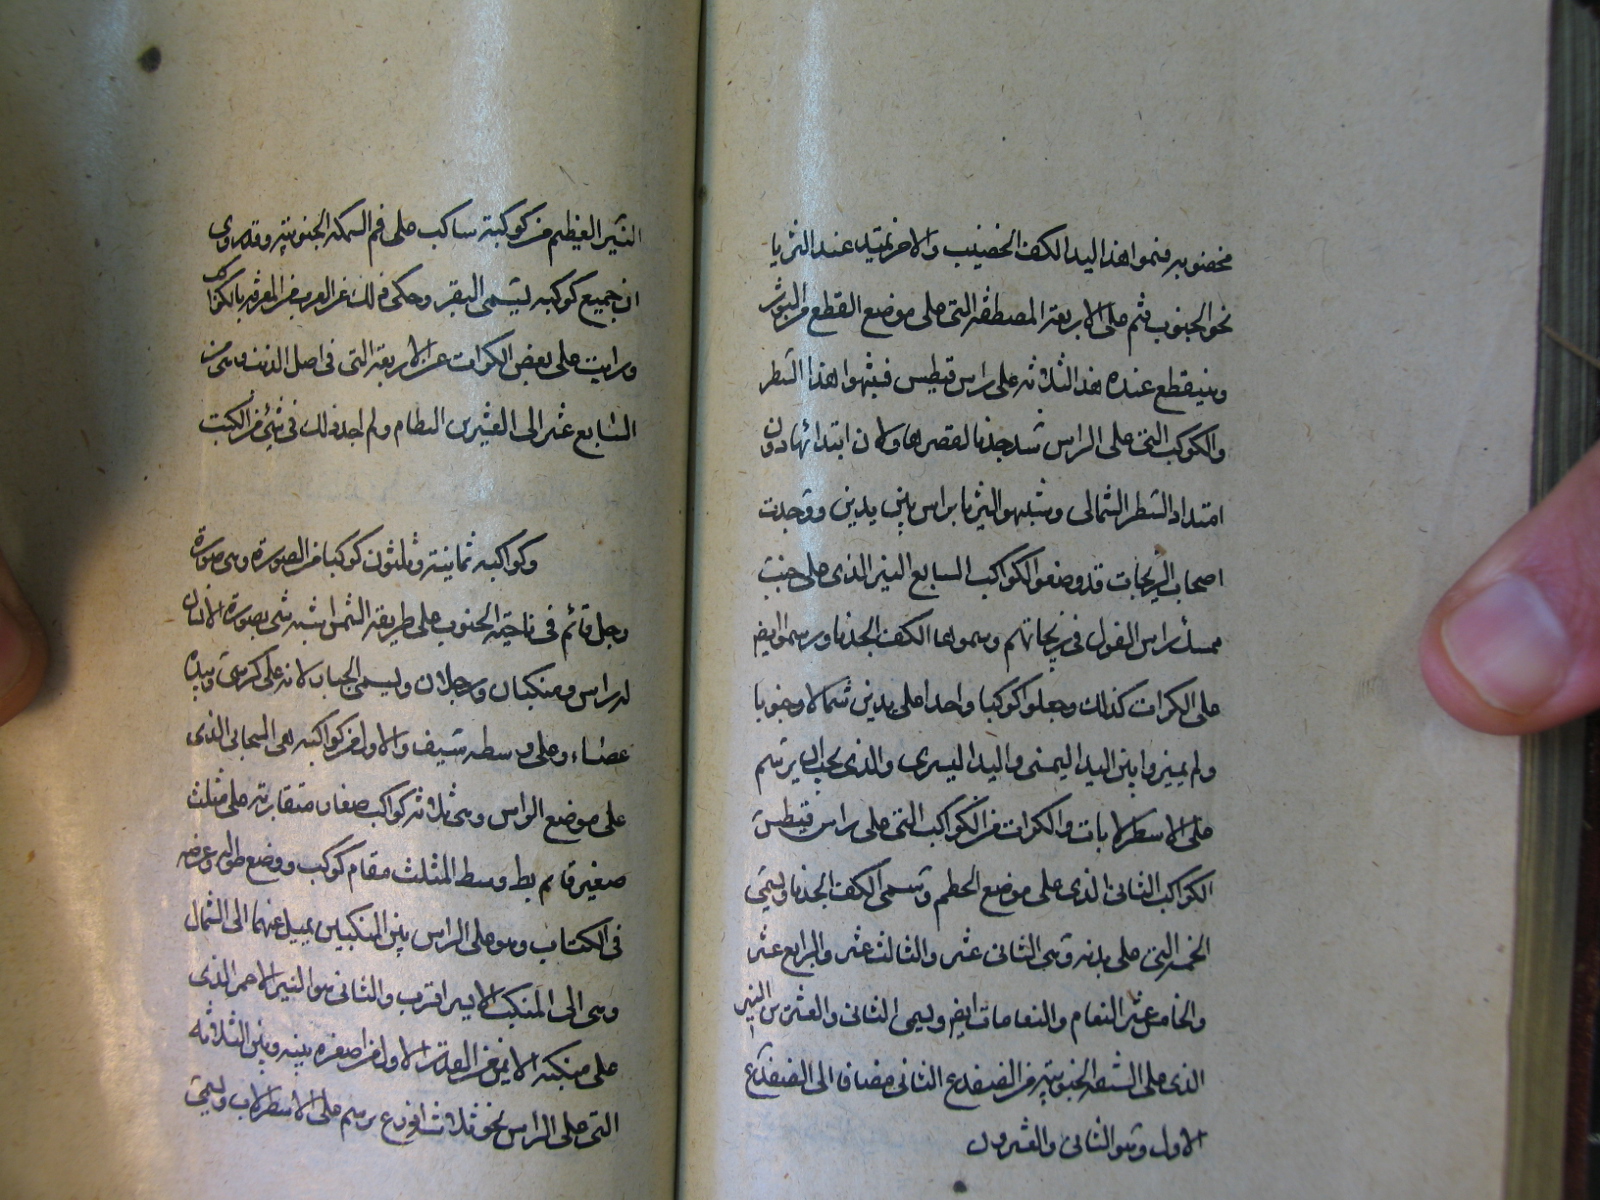 مخضوبه فسموا هذا اليد الكف الخضيب والاخر يمتد عند الثريا
نحو الجنوب فتمر على الاربعة المصطفة التى على موضع القطع من الثور
وينقطع عنده هذه الثلاثه على راس قيطس فشبهوا هذا الشطر
والكوكب التى على الراس بيد جذما لقصرها ولان ابتدائها دون
امتداد الشطر الشمالى وشبهوا الثريا براس بين يدين ووجدت
اصحاب الزيجات قد وضعوا الكواكب السابع النير الذى على جنب
ممسك راس الغول فى زيجاتهم وسموها الكف الجذما ورسموا ايضا
على الكرات كذلك وجعلوا كوكبا واحدا على يدين شمالا وجنوبا
ولم يميزوا بين اليد اليمنى واليد اليسرى والذى يجب ان يرسم
على الاسطرلابات والكرات من الكواكب التى على راس قيطس
الكوكب الثانى الذى على موضع الخطم وتسمى الكف الجذما ويسمى
الخمسه التى على بدنه وهى الثانى عشر والثالث عشر والرابع عشر
والخامس عشر النعام والنعامات ايضا ويسمى الثانى والعشرين النير
الذى على الشعبه الجنوبيه من الضفدع الثانى مضافا الى الضفدع
الاول وهو الثانى والعشرون
النير العظيم من كوكبة ساكب على فم السمكه الجنوبيه وقد روى
ان جميع كوكبه يسمى البقر وحكى ذلك عن العرب من المعرفة بالكواكب
ورايت على بعض الكرات عن الاربعة التى فى اصل الذنب وهى من
السابع عشر الى العشرين النظام ولم اجد ذلك فى شئ من الكتب
وكواكبه ثمانية وثلثون كوكبا من الصورة وهى صورة
رجل قائم فى ناحية الجنوب على طريقة الشمس اشبه شى بصورة الانسان
له راس ومنكبان ورجلان ويسمى الجبار لانه على كرسى وبيده
عصاء وعلى وسطه سيف والاول من كواكبه هى السحابى الذى
على موضع الراس وهى ثلاثة كواكب صغار متقاربة على مثلث
صغير قائم بط وسط المثلث مقام كوكب ووضع طوله وعرضه
فى الكتاب وهو على الراس بين المنكبين يميل عنهما الى الشمال
وهى الى المنكب الايسر اقرب والثانى هو النير الاحمر الذى
على منكبه الايمن من القدر الاول من اصغره بينه وبين الثلاثه
التى على الراس نحو ثلاث اذرع يرسم على الاسطرلاب ويسمى